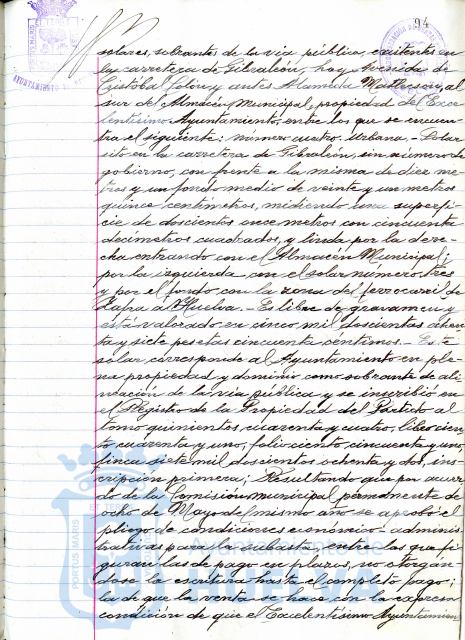 94
solares, sobrantes de la via pública, existentes en
la carretera de Gibraleón, hoy Avenida de
Cristóbal Colon y antes Alameda Matherson, al
sur del Almacén Municipal, propiedad del Exce-
lentisimo Ayuntamiento, entre los que se encuen-
tra el siguiente: número cuatro. Urbana. - Solar
sito en la carretera de Gibraleón, sin número de
gobierno, con frente a la misma de diez me-
tros y un fondo medio de veinte y un metros
quince centimetros, midiendo una superfi-
cie de doscientos once metros con cincuenta
decimetros cuadrados, y linda por la dere-
cha entrando con el Almacén Municipal;
por la izquierda con el solar número tres
y por el fondo con la zona del ferrocarril de
Zafra á Huelva. - Es libre de gravamen y
está valorado en cinco mil doscientas ochen-
ta y siete pesetas cincuenta centimos. - Este
solar corresponde al Ayuntamiento en ple-
na propiedad y dominio como sobrante de ali-
neación de la via pública y se inscribió en
el Registro de la Propiedad del Partido al
tomo quinientos, cuarenta y cuatro, libro cien-
to cuarenta y uno, folio ciento cincuenta y uno,
finca siete mil doscientos ochenta y dos, ins-
cripción primera; Resultando que por acuer-
do de la Comisión municipal permanente de
ocho de Mayo del mismo año se aprobó el
pliego de condiciones económico-adminis-
trativas para la subasta, entre las que fi-
guran las de pago en plazos, no otorgan-
dose la escritura hasta el completo pago;
la de que la venta se hace con la expresa
condición de que el Excelentisimo Ayuntamien
AYUNTAMIENTO
PORTUS MARIS
Ayuntamiento de
HUELVA